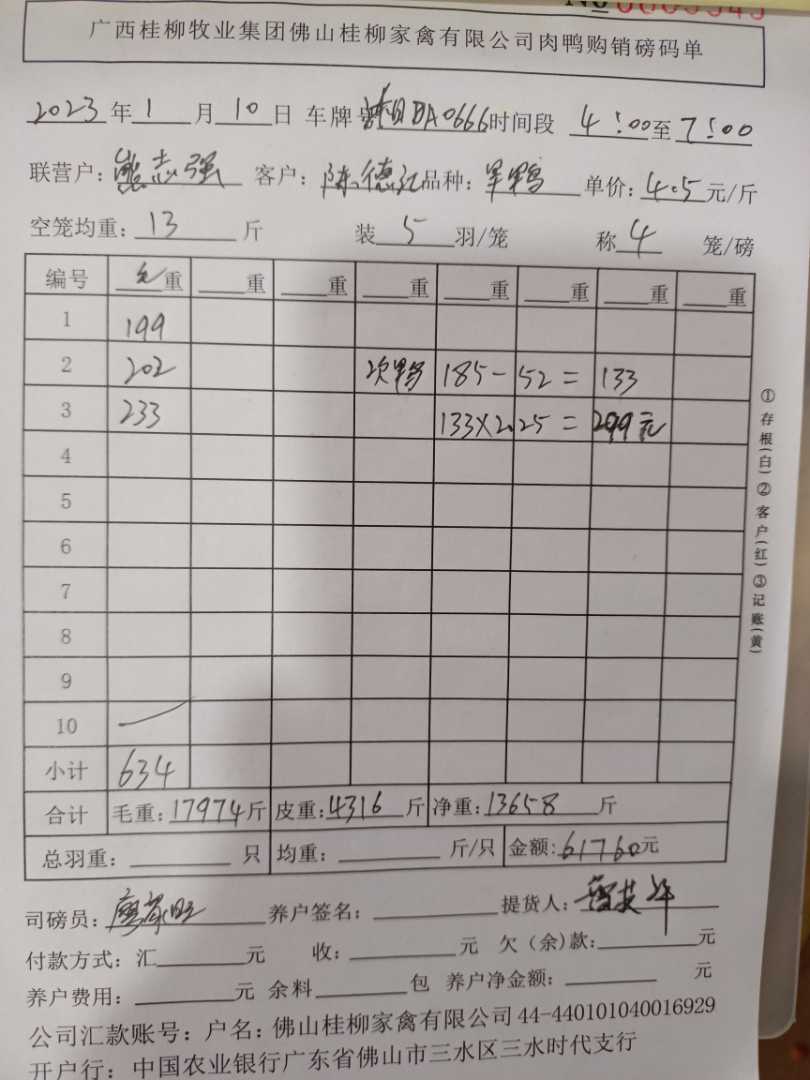 广西桂柳牧业集团佛山桂柳家禽有限公司肉鸭购销磅码单
2023年1月10日 车牌号 DA0666 时间段 4:00至7:00
联营户:熊志强 客户:陈德江 品种: 鸭 单价:4.5元/斤
空笼均重:13斤 装5羽/笼 称4笼/磅
编号 毛重 重 重 重 重 重 重 重
1 199
2 202 次鸭 185-52=133
3 233 133×2.25=299元
4
5
6
7
8
9
10
小计 634
合计 毛重:17974斤 皮重:4316斤 净重:13658斤
总羽重: 只 均重: 斤/只 金额:61760元
司磅员: 养户签名: 提货人:
付款方式:汇 元 收: 元 欠(余)款: 元
养户费用: 元 余料 包 养户净金额: 元
公司汇款账号:户名:佛山桂柳家禽有限公司 44-440101040016929
开户行:中国农业银行广东省佛山市三水区三水时代支行
①存根(白)②客户(红)③记账(黄)